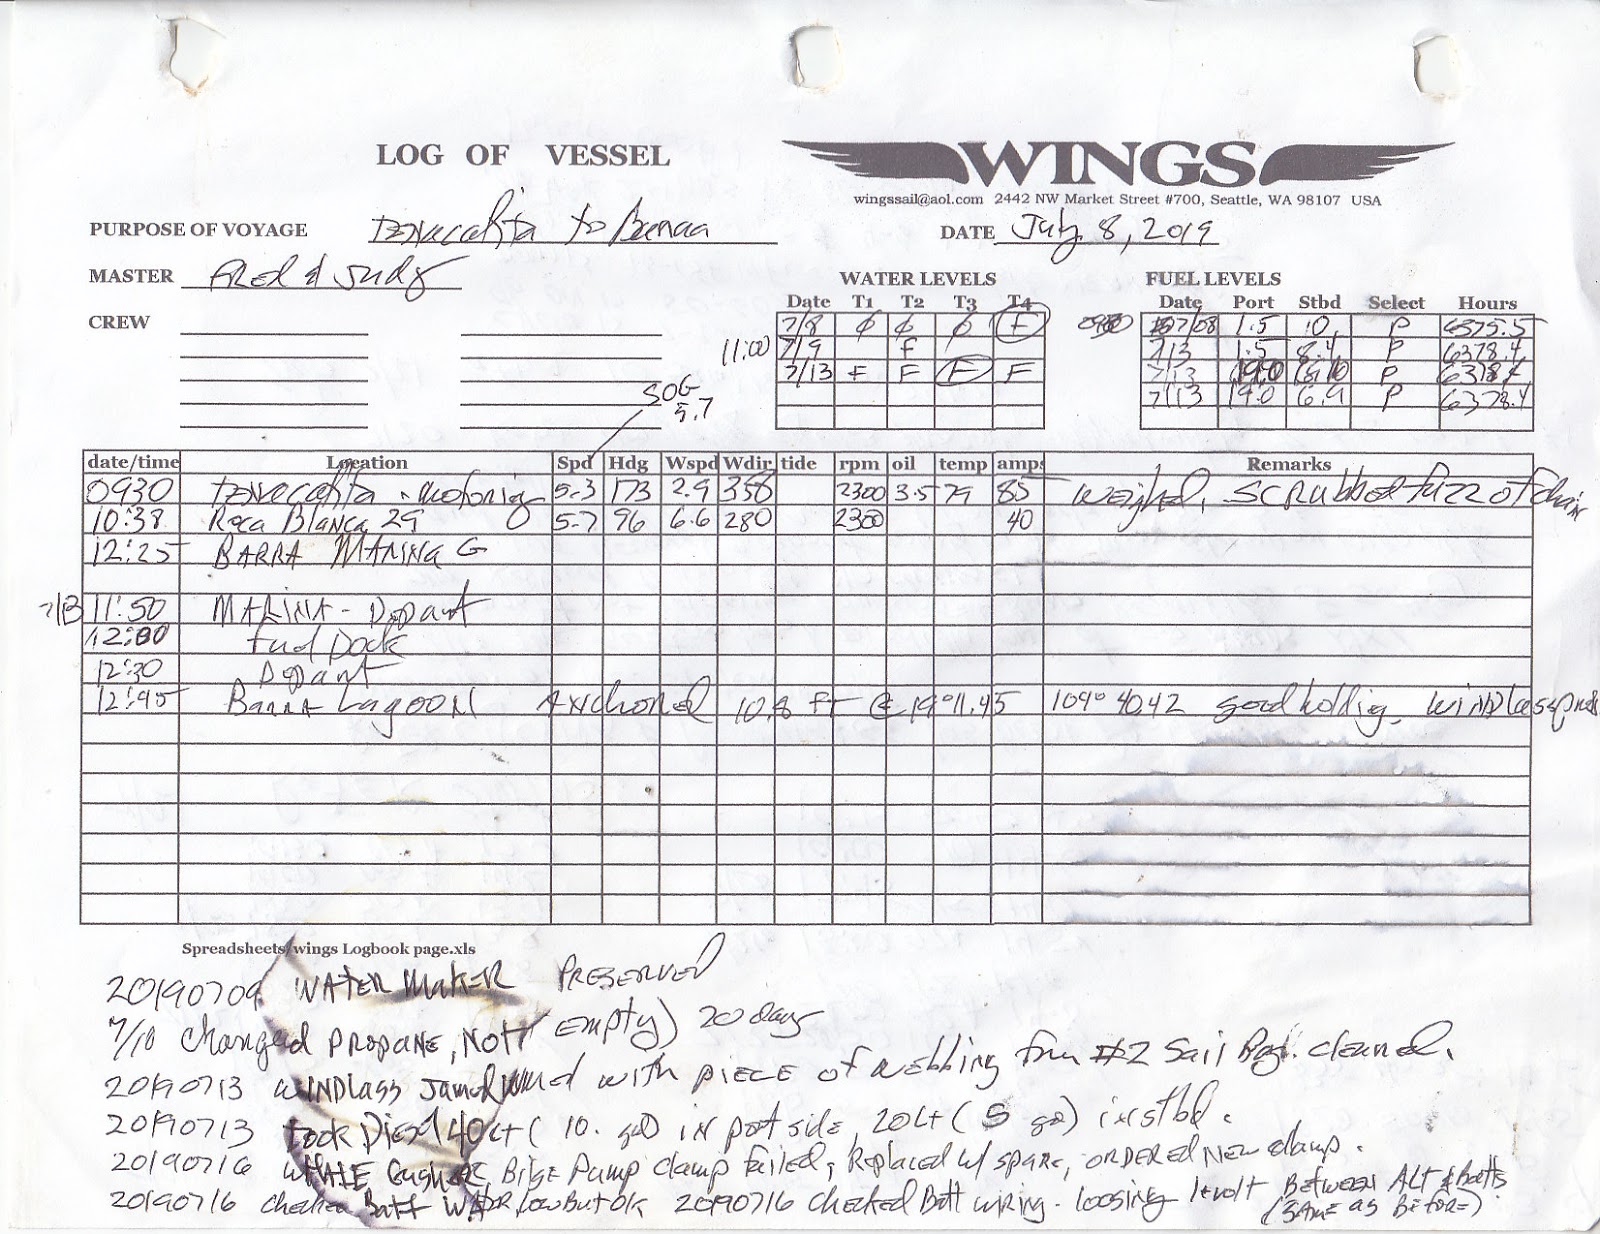 LOG OF VESSEL
WINGS
wingssail@aol.com 2442 NW Market Street #700, Seattle, WA 98107 USA
PURPOSE OF VOYAGE Tenacatita to Barra
DATE July 8, 2019
MASTER Fred & Judy
CREW
WATER LEVELS
Date T1 T2 T3 T4
7/8 ϕ ϕ ϕ F
11:00 7/9 F
7/13 F F F F
FUEL LEVELS
Date Port Stbd Select Hours
07/08 1.5 10. P 6375.5
7/13 1.5 8.4 P 6378.4
7/13 19.0 P 6378.4
7/13 19.0 6.9 P 6378.4
SOG
5.7
date/time Location Spd Hdg Wspd Wdir tide rpm oil temp amps Remarks
0930 Tenacatita - motoring 5.3 173 2.9 358 2300 3.5 79 85 weighed, scrubbed fuzz of chain
10:38 Roca Blanca 29 5.7 96 6.6 280 2300 40
12:25 BARRA MARINA G
7/13 11:50 MARINA - Depart
12:00 Fuel Dock
12:30 Depart
12:45 Barra Lagoon Anchored 10.8 ft @ 19°11.45 104° 40.42 good holding, windlass
Spreadsheets/wings Logbook page.xls
20190709 WATER MAKER PRESERVED
7/10 Changed PROPANE, NOT empty) 20 days
20190713 WINDLASS Jamed with piece of webbing from #2 Sail Bag. cleaned.
20190713 took Diesel 40Lt ( 10. gal) in port side, 20Lt ( 5 ga) in stbd.
20190716 WHALE Gusher Bilge Pump clamp failed, Replaced w/ spare, ORDERED NEW clamp.
20190716 Checked Batt WATER, low but ok 20190716 checked Batt wiring. loosing 1 volt BETWEEN ALT & Batts
(SAME as BEFORE)